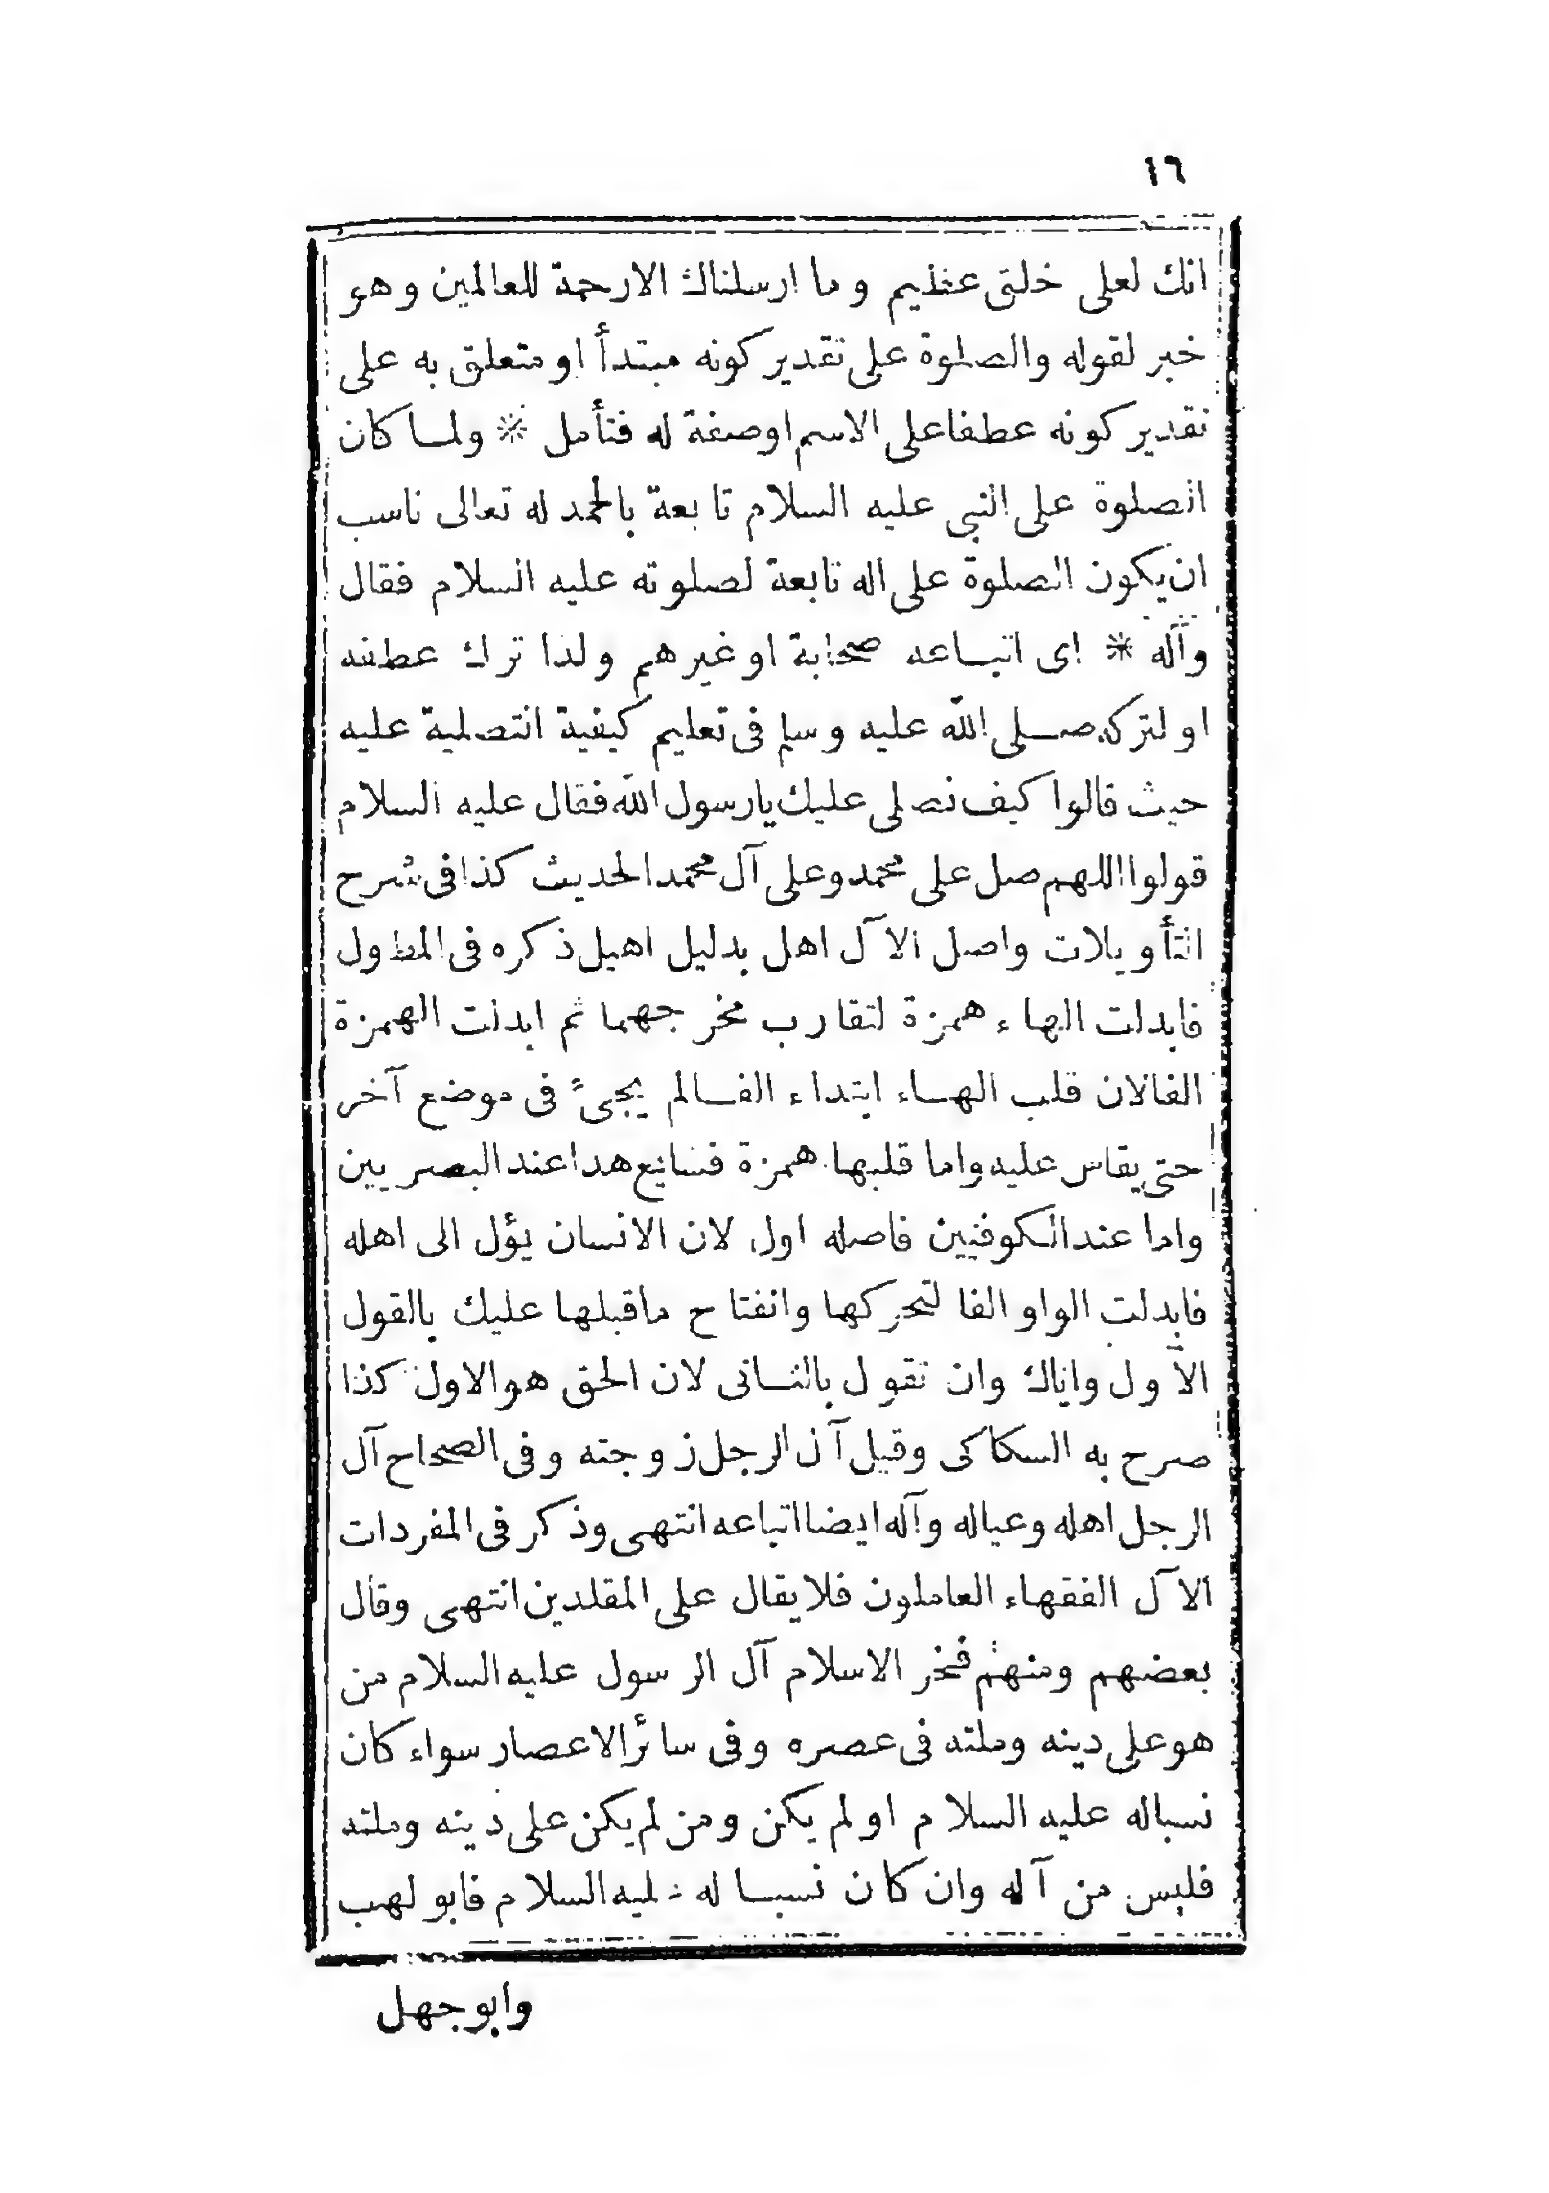 ١٦
انك لعلى خلق عظيم وما ارسلناك الارحمة للعالمين وهو
خبر لقوله والصلوة على تقدير كونه مبتدأ او متعلق به على
تقدير كونه عطفا على الاسم اوصفة له فتأمل * ولما كان
الصلوة على النبى عليه السلام تابعة بالحمد له تعالى ناسب
ان يكون الصلوة على اله تابعة لصلوته عليه السلام فقال
وآله * اى اتباعه صحابة او غيرهم ولذا ترك عطفه
او لتركه صلى الله عليه وسلم فى تعليم كيفية التصلية عليه
حيث قالوا كيف نصلى عليك يارسول الله فقال عليه السلام
قولوا اللهم صل على محمد وعلى آل محمد الحديث كذا فى شرح
التأويلات واصل الآل اهل بدليل اهيل ذكره فى المطول
فابدلت الهاء همزة لتقارب مخرجهما ثم ابدلت الهمزة
الفالان قلب الهاء ابتداء الفالم يجئ فى موضع آخر
حتى يقاس عليه واما قلبها همزة فشايع هذا عند البصريين
واما عند الكوفيين فاصله اول لان الانسان يؤل الى اهله
فابدلت الواو الفا لتحركها وانفتاح ماقبلها عليك بالقول
الاول واياك وان تقول بالثانى لان الحق هو الاول كذا
صرح به السكاكى وقيل آل الرجل زوجته وفى الصحاح آل
الرجل اهله وعياله وآله ايضا اتباعه انتهى وذكر فى المفردات
الآل الفقهاء العاملون فلا يقال على المقلدين انتهى وقال
بعضهم ومنهم فخر الاسلام آل الرسول عليه السلام من
هو على دينه وملته فى عصره وفى سائر الاعصار سواء كان
نسباله عليه السلام او لم يكن ومن لم يكن على دينه وملته
فليس من آله وان كان نسبا له عليه السلام فابو لهب
وابو جهل